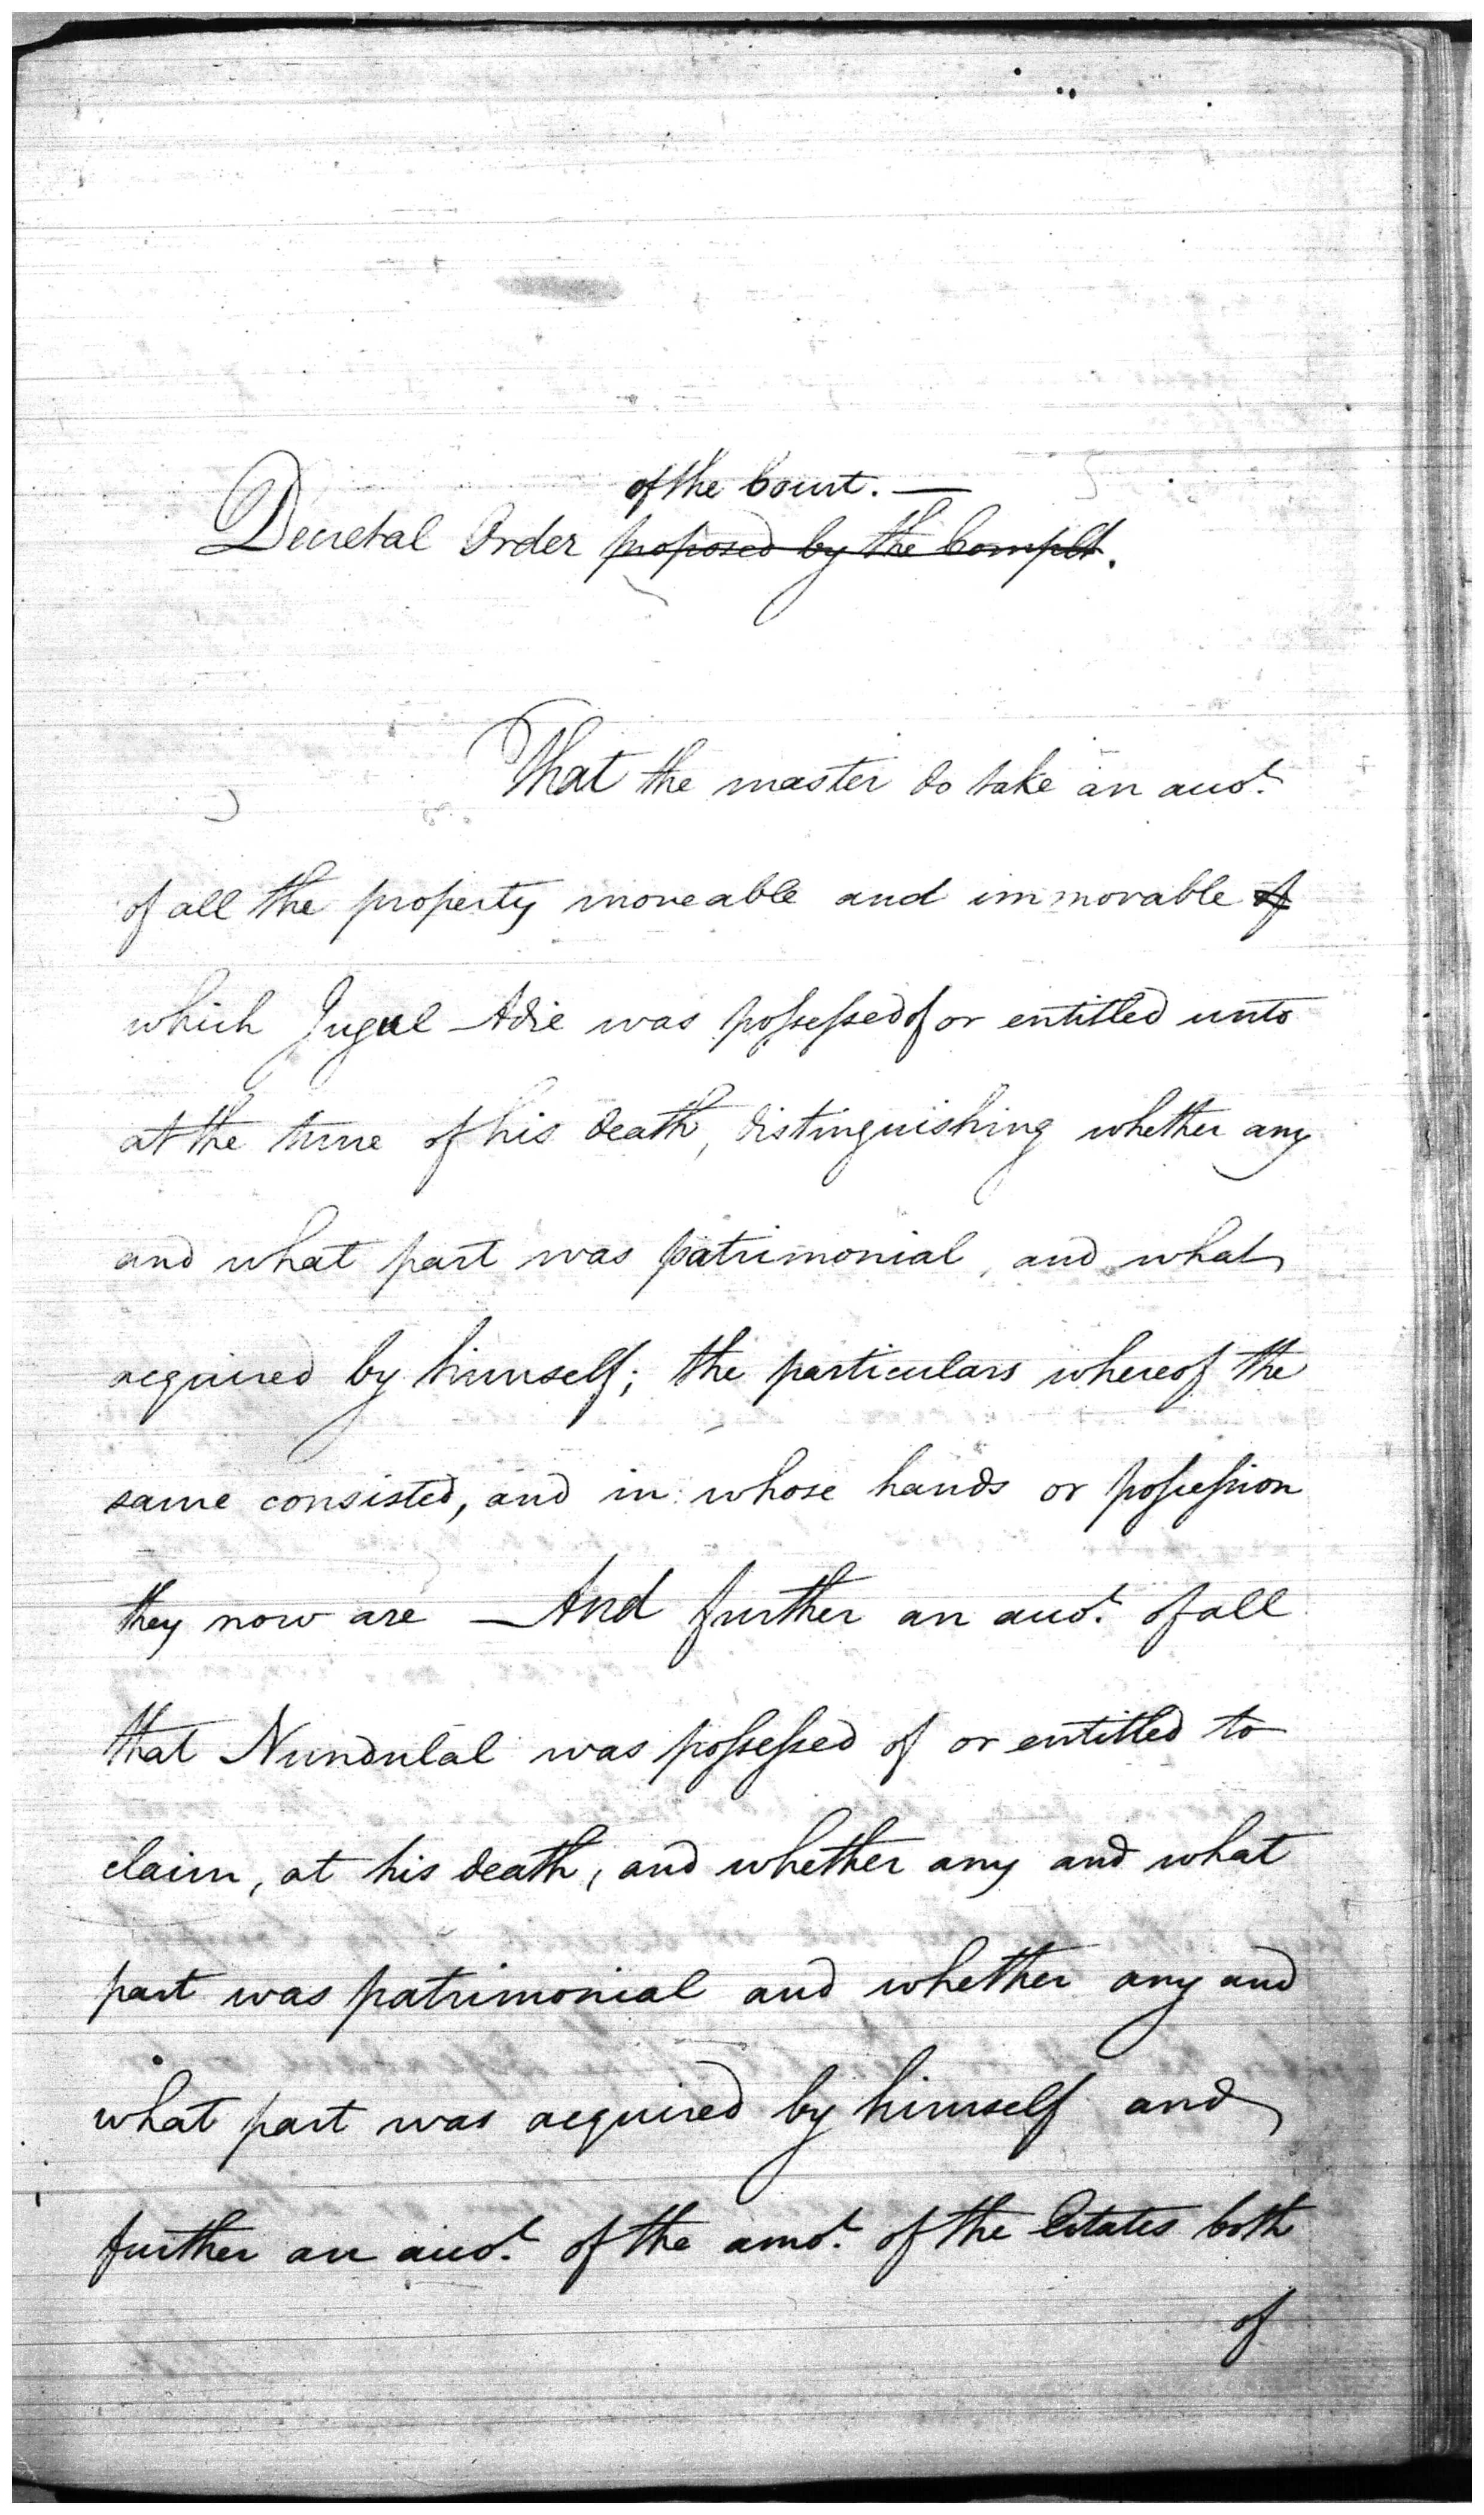 of the Court. —
Decretal Order proposed by the Complt.
That the master do take an acco.t
of all the property moveable and immovable of
which Jugul Adie was possessed of or entitled unto
at the time of his death, distinguishing whether any
and what part was patrimonial, and what
acquired by himself; the particulars whereof the
same consisted, and in whose hands or possession
they now are — And further an acco.t of all
that Nundulal was possessed of or entitled to
claim, at his death, and whether any and what
part was patrimonial and whether any and
what part was acquired by himself and
further an acco.t of the amo.t of the Estates both
of